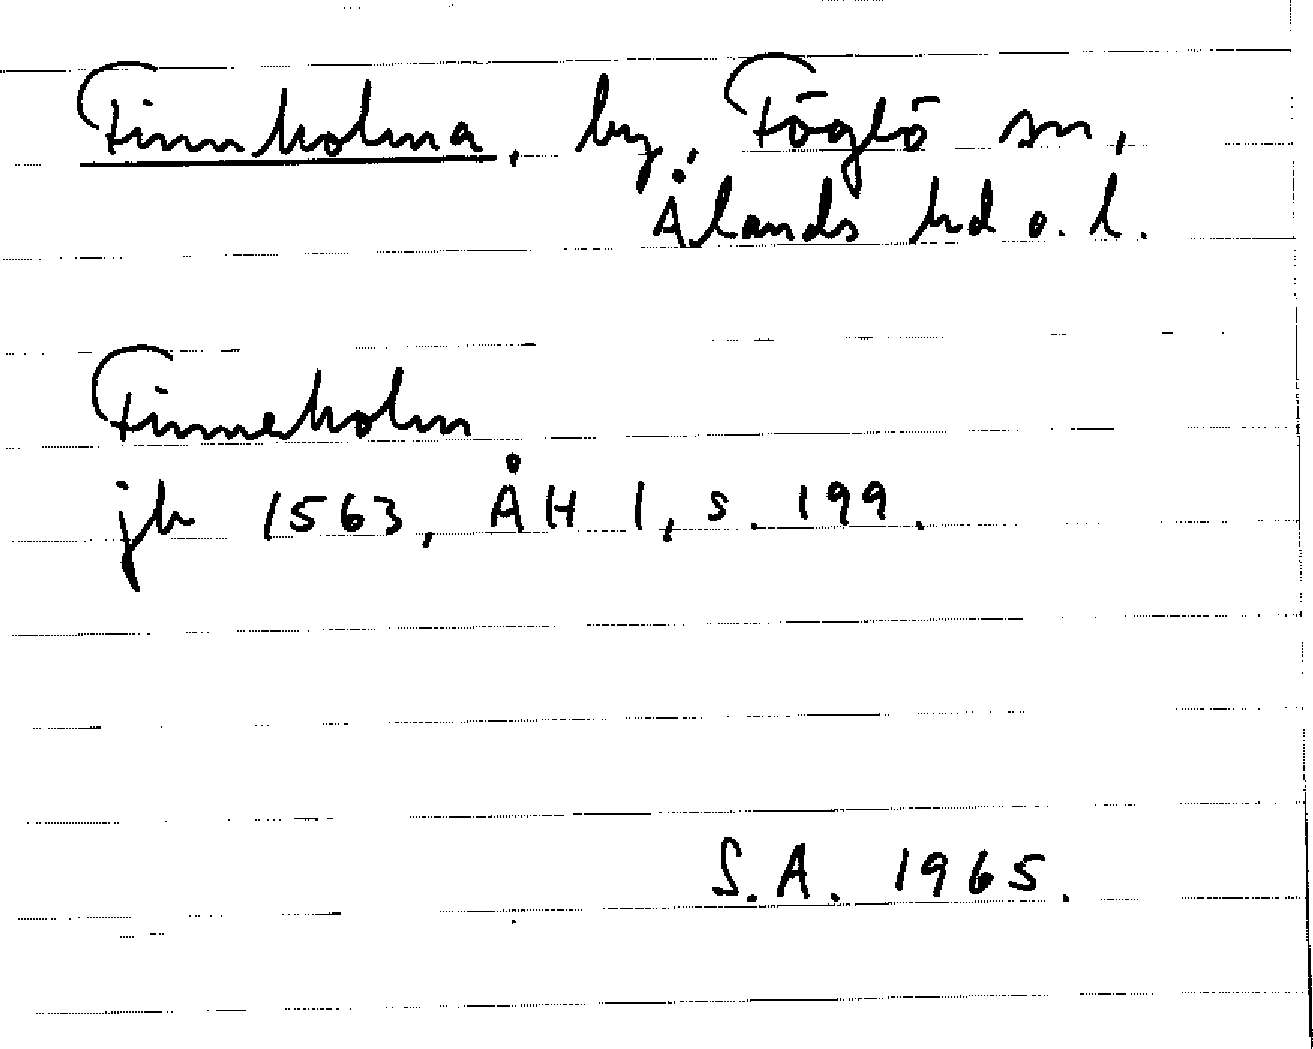 Finnholma, by, Föglö sn,
Ålands hd o. l.
Finneholm
jb 1563, ÅH 1, s. 199.
S.A. 1965.